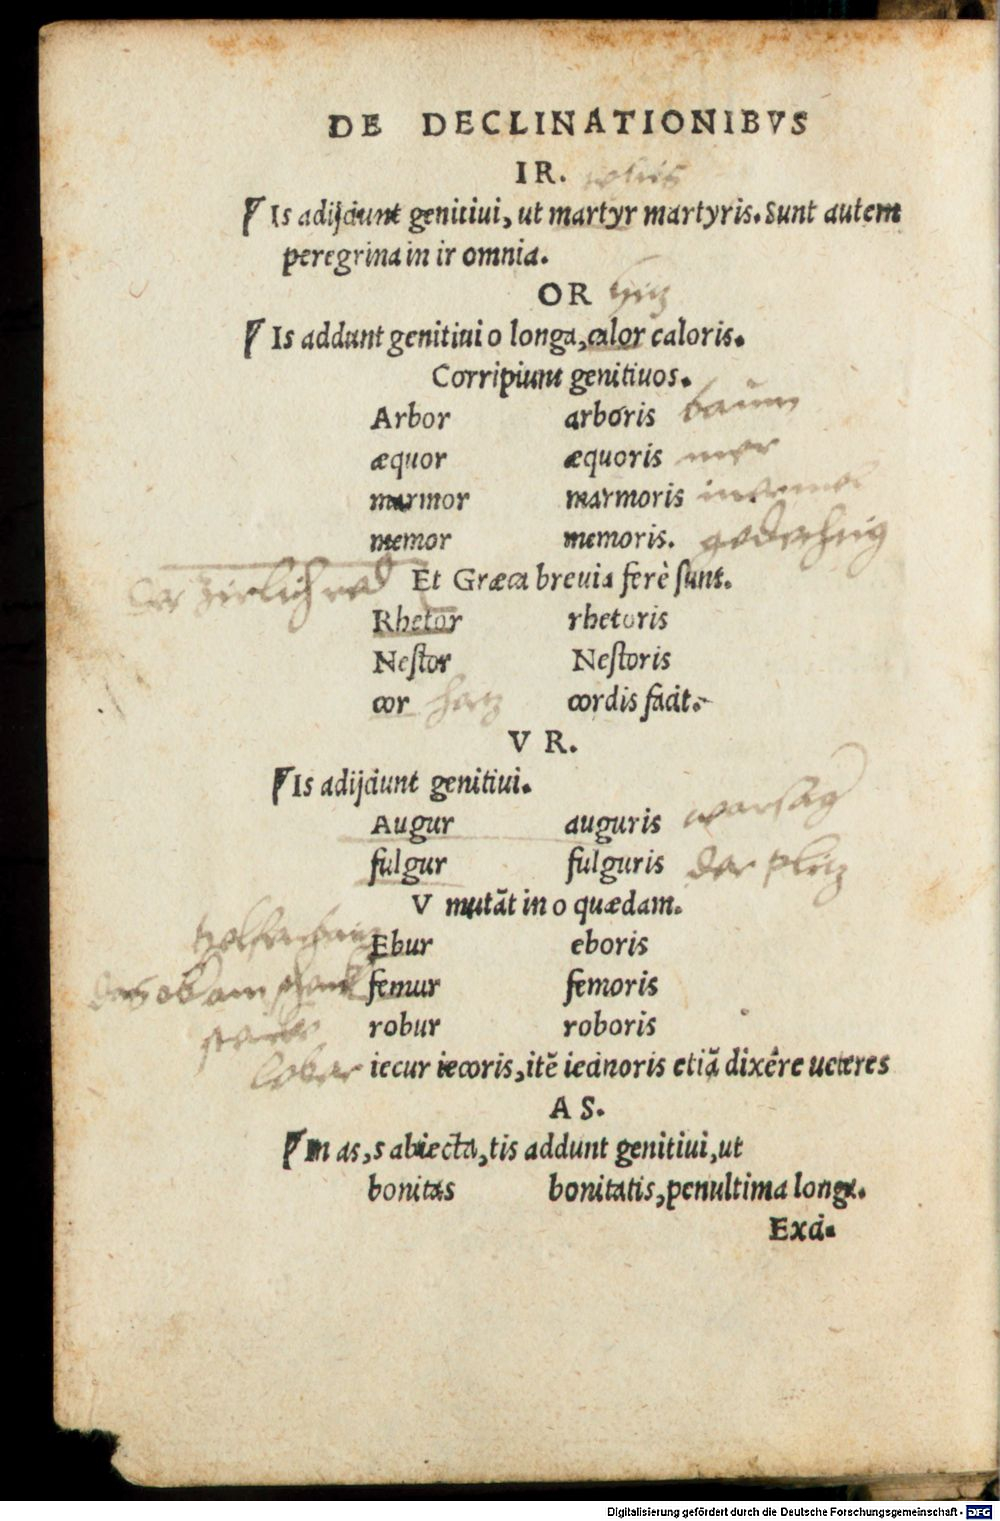 DE DECLINATIONIBVS
IR.
Is adijciunt genitiui, ut martyr martyris. Sunt autem
peregrina in ir omnia.
OR hitz
Is addunt genitiui o longa, calor caloris.
Corripiunt genitiuos.
Arbor arboris baum
æquor æquoris mer
marmor marmoris
memor memoris.
Et Græca breuia ferè ſunt.
der zierlich red
Rhetor rhetoris
Neſtor Neſtoris
cor hertz cordis facit.
V R.
Is adijciunt genitiui.
Augur auguris warsag
fulgur fulguris der plitz
V mutãt in o quædam.
Ebur eboris
femur femoris
robur roboris
leber iecur iecoris, itẽ iecinoris etiã dixêre ueteres
A S.
In as, s abiecta, tis addunt genitiui, ut
bonitas bonitatis, penultima longa.
Exci.
Digitalisierung gefördert durch die Deutsche Forschungsgemeinschaft - DFG